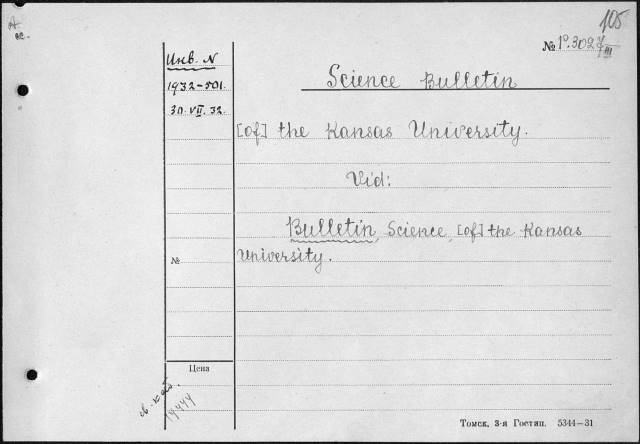 105
№ 1°.3027/III
Инв. N
1932-501.
30.VII.32.
Science Bulletin
[of] the Kansas University.
Vid:
Bulletin, Science, [of] the Kansas
University.
№
Цена
19444
Томск, 3-я Гостип. 5344—31